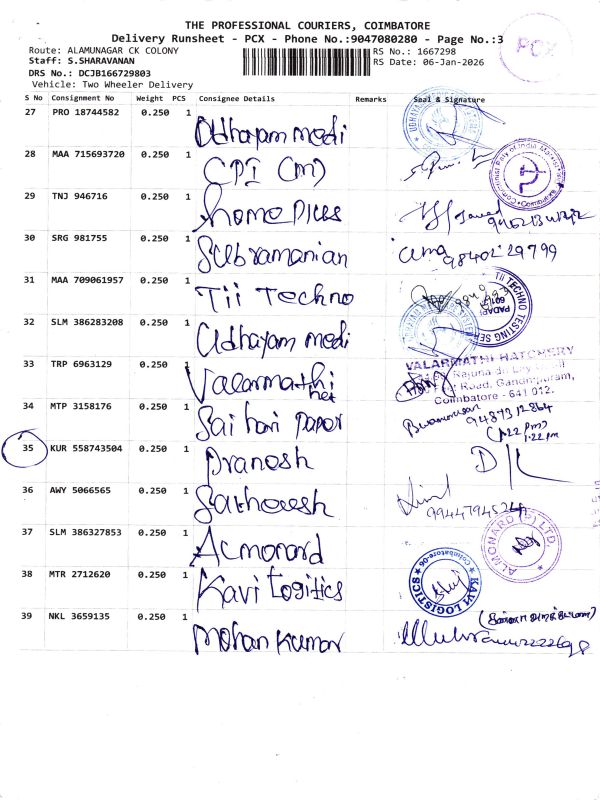 THE PROFESSIONAL COURIERS, COIMBATORE
Delivery Runsheet - PCX - Phone No.:9047080280 - Page No.:3
PCX
Route: ALAMUNAGAR CK COLONY
RS No.: 1667298
Staff: S.SHARAVANAN
RS Date: 06-Jan-2026
DRS No.: DCJB166729803
Vehicle: Two Wheeler Delivery
S No Consignment No Weight PCS Consignee Details Remarks Seal & Signature
27 PRO 18744582 0.250 1 Udhayam medi
28 MAA 715693720 0.250 1 CPI (M)
29 TNJ 946716 0.250 1 home plus
30 SRG 981755 0.250 1 Subramanian uma 9840229799
31 MAA 709061957 0.250 1 Tii Techno
TII TECHNO TESTING SER
32 SLM 386283208 0.250 1 Udhayam medi
33 TRP 6963129 0.250 1 Valarmathi het
VALARMATHI HATCHERY
Road, Ganapuram,
Coimbatore - 641 012.
34 MTP 3158176 0.250 1 Sai hari paper 9487312864
1.22 pm
35 KUR 558743504 0.250 1 Pranesh
36 AWY 5066565 0.250 1 Satheesh
37 SLM 386327853 0.250 1 Acmonard
ALMONARD (P) LTD.
38 MTR 2712620 0.250 1 Kavi Logitics
KAVI LOGISTICS
39 NKL 3659135 0.250 1 Mohan kumar